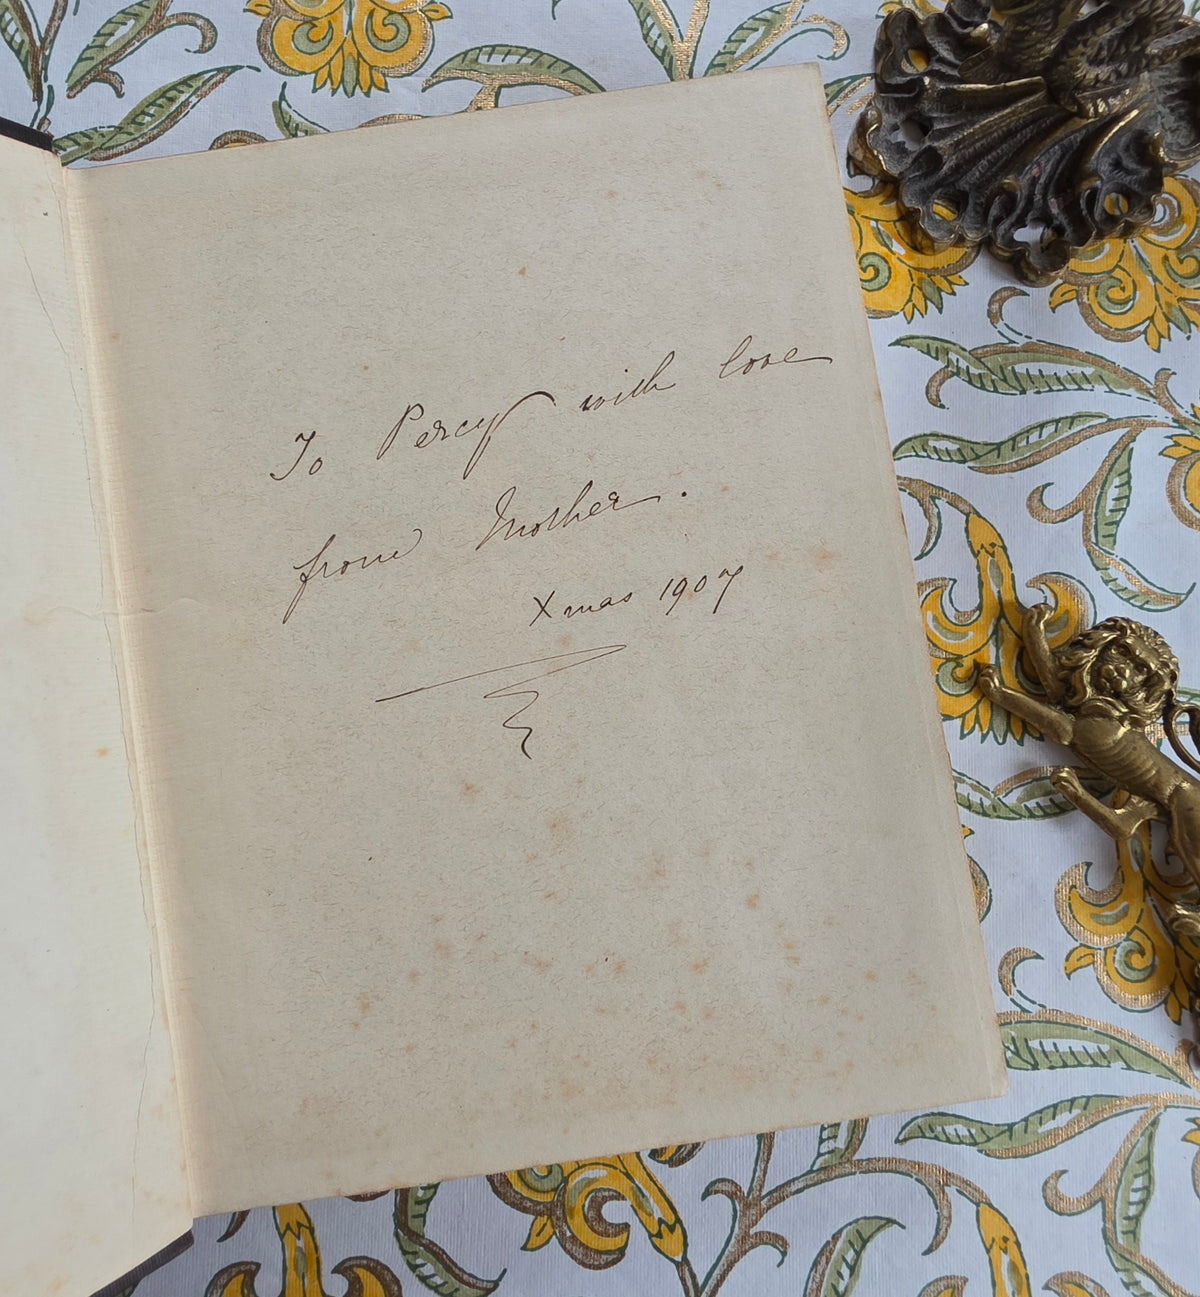 To Percy with love
from Mother.
Xmas 1907